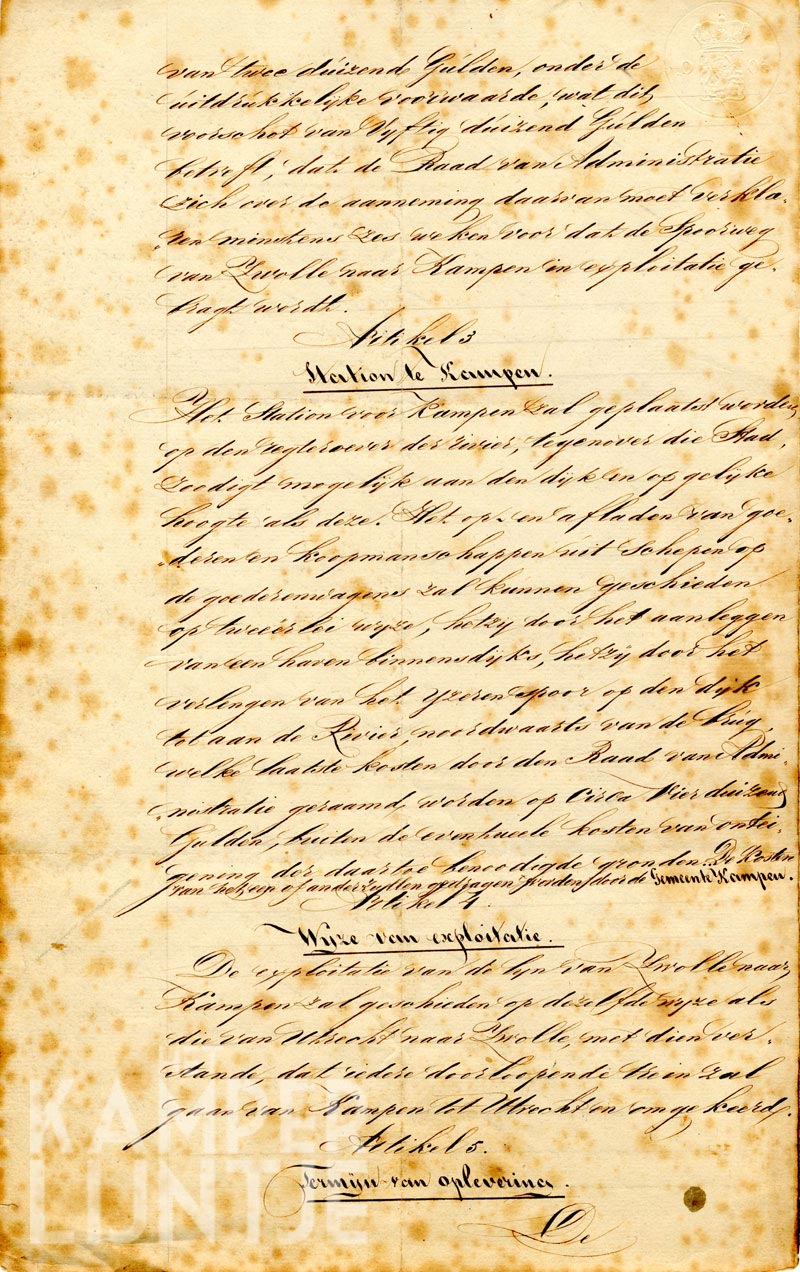 van twee duizend Gulden, onder de
uitdrukkelijke voorwaarde, wat dit
voorschot van Vyftig duizend Gulden
betreft, dat de Raad van Administratie
zich over de aanneming daarvan moet verkla-
"ren minstens zes weken voor dat de Spoorweg
van Zwolle naar Kampen in exploitatie ge-
bragt wordt.
Artikel 3
Station te Kampen.
Het Station voor Kampen zal geplaatst worden
op den regteroever der rivier, tegenover die Stad,
zoodigt mogelijk aan den dijk en op gelijke
hoogte als deze. Het op- en afladen van goe-
"deren en koopmanschappen uit Schepen op
de goederenwagens zal kunnen geschieden
op tweeërlei wyze, hetzy door het aanleggen
van een haven binnensdyks, hetzij door het
verlengen van het yzeren spoor op den dijk
tot aan de Rivier, noordwaarts van de brug,
welke laatste kosten door den Raad van Admi-
"nistratie geraamd worden op Circa Vier duizend
Gulden, buiten de eventueele kosten van ontei-
gening der daartoe benoodigde gronden. De Kosten
van het een of ander zullen gedragen worden door de Gemeente Kampen.
Artikel 4.
Wijze van exploitatie.
De exploitatie van de lyn van Zwolle naar
Kampen zal geschieden op dezelfde wyze als
die van Utrecht naar Zwolle, met dien ver-
stande, dat iedere doorloopende trein zal
gaan van Kampen tot Utrecht en omgekeerd.
Artikel 5.
Termijn van oplevering.
De
HET
KAMPER
LIJNTJE